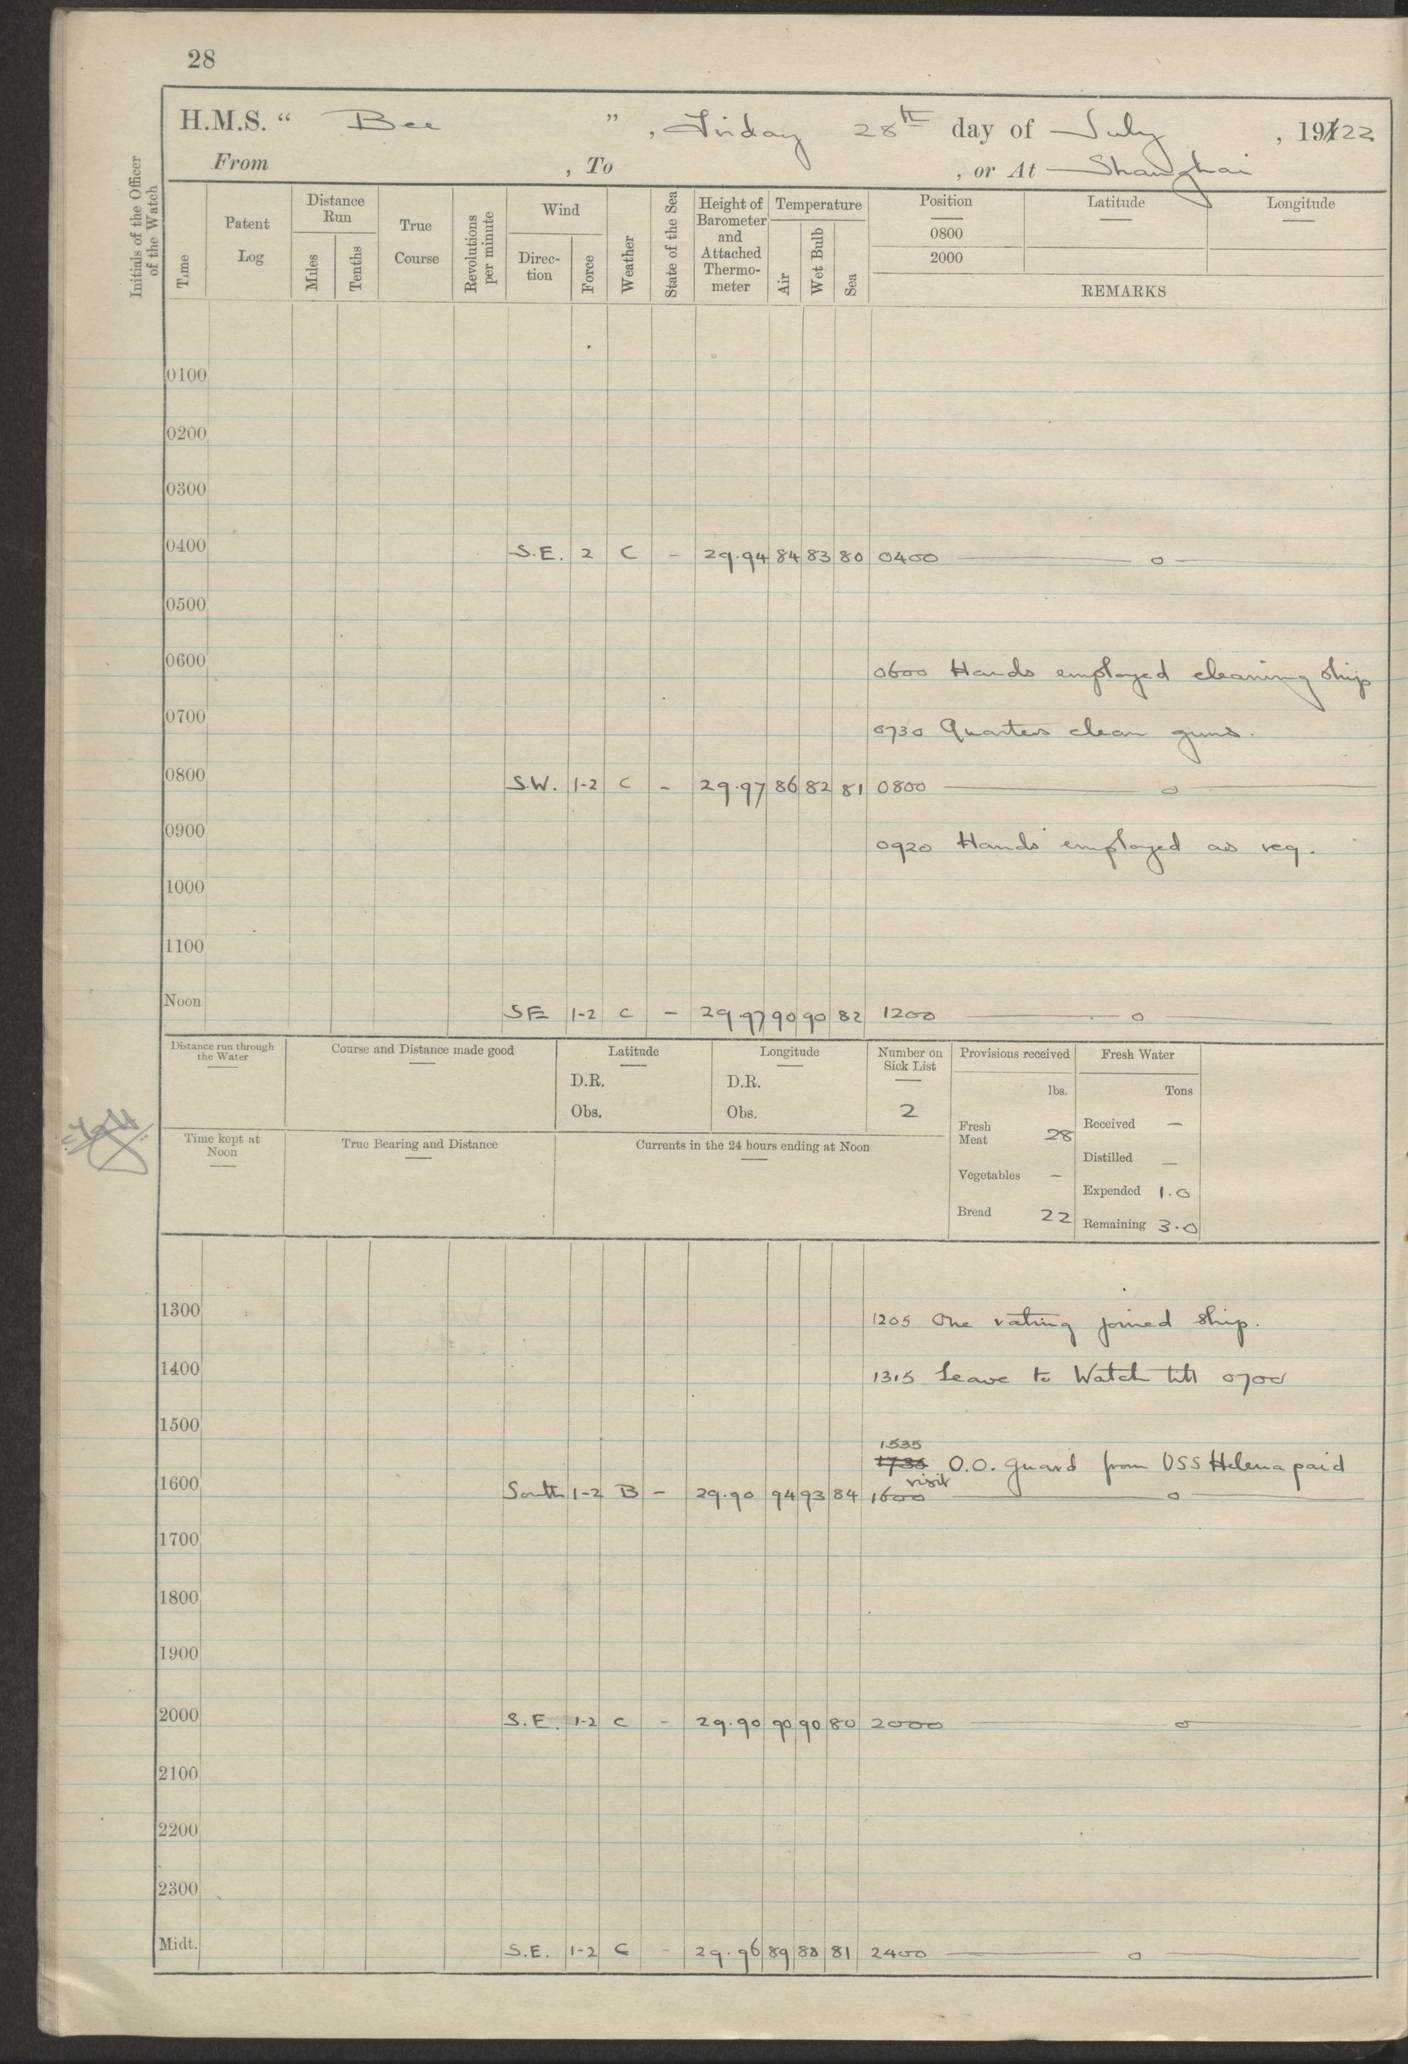 28
H.M.S. “ Bee ” , Friday 28th day of July , 191 22
From , To , or At Shanghai
Initials of the Officer of the Watch
Time
Patent Log
Distance Run
Miles
Tenths
True Course
Revolutions per minute
Wind
Direc-tion
Force
Weather
State of the Sea
Height of Barometer and Attached Thermo-meter
Temperature
Air
Wet Bulb
Sea
Position Latitude Longitude
0800
2000
REMARKS
0100
0200
0300
0400 S.E. 2 C - 29.94 84 83 80 0400 —— o ——
0500
0600
0600 Hands employed cleaning ship
0700
0730 Quarters clean guns.
0800 S.W. 1-2 C - 29.97 86 82 81 0800 —— o ——
0900
0920 Hands employed as req.
1000
1100
Noon SE 1-2 C - 29 97 90 90 82 1200 —— o ——
Distance run through the Water
Course and Distance made good
Latitude
D.R.
Obs.
Longitude
D.R.
Obs.
Number on Sick List
2
Provisions received
lbs.
Fresh Meat 28
Vegetables –
Bread 22
Fresh Water
Tons
Received –
Distilled –
Expended 1.0
Remaining 3.0
Time kept at Noon
True Bearing and Distance
Currents in the 24 hours ending at Noon
1300
1205 One rating joined ship.
1400
1315 Leave to Watch till 0700
1500
1535
1735 O.O. guard from USS Helena paid
visit
1600 South 1-2 B - 29.90 94 93 84 1600 —— o ——
1700
1800
1900
2000 S.E. 1-2 C - 29.90 90 90 80 2000 —— o ——
2100
2200
2300
Midt. S.E. 1-2 C - 29.96 89 88 81 2400 —— o ——